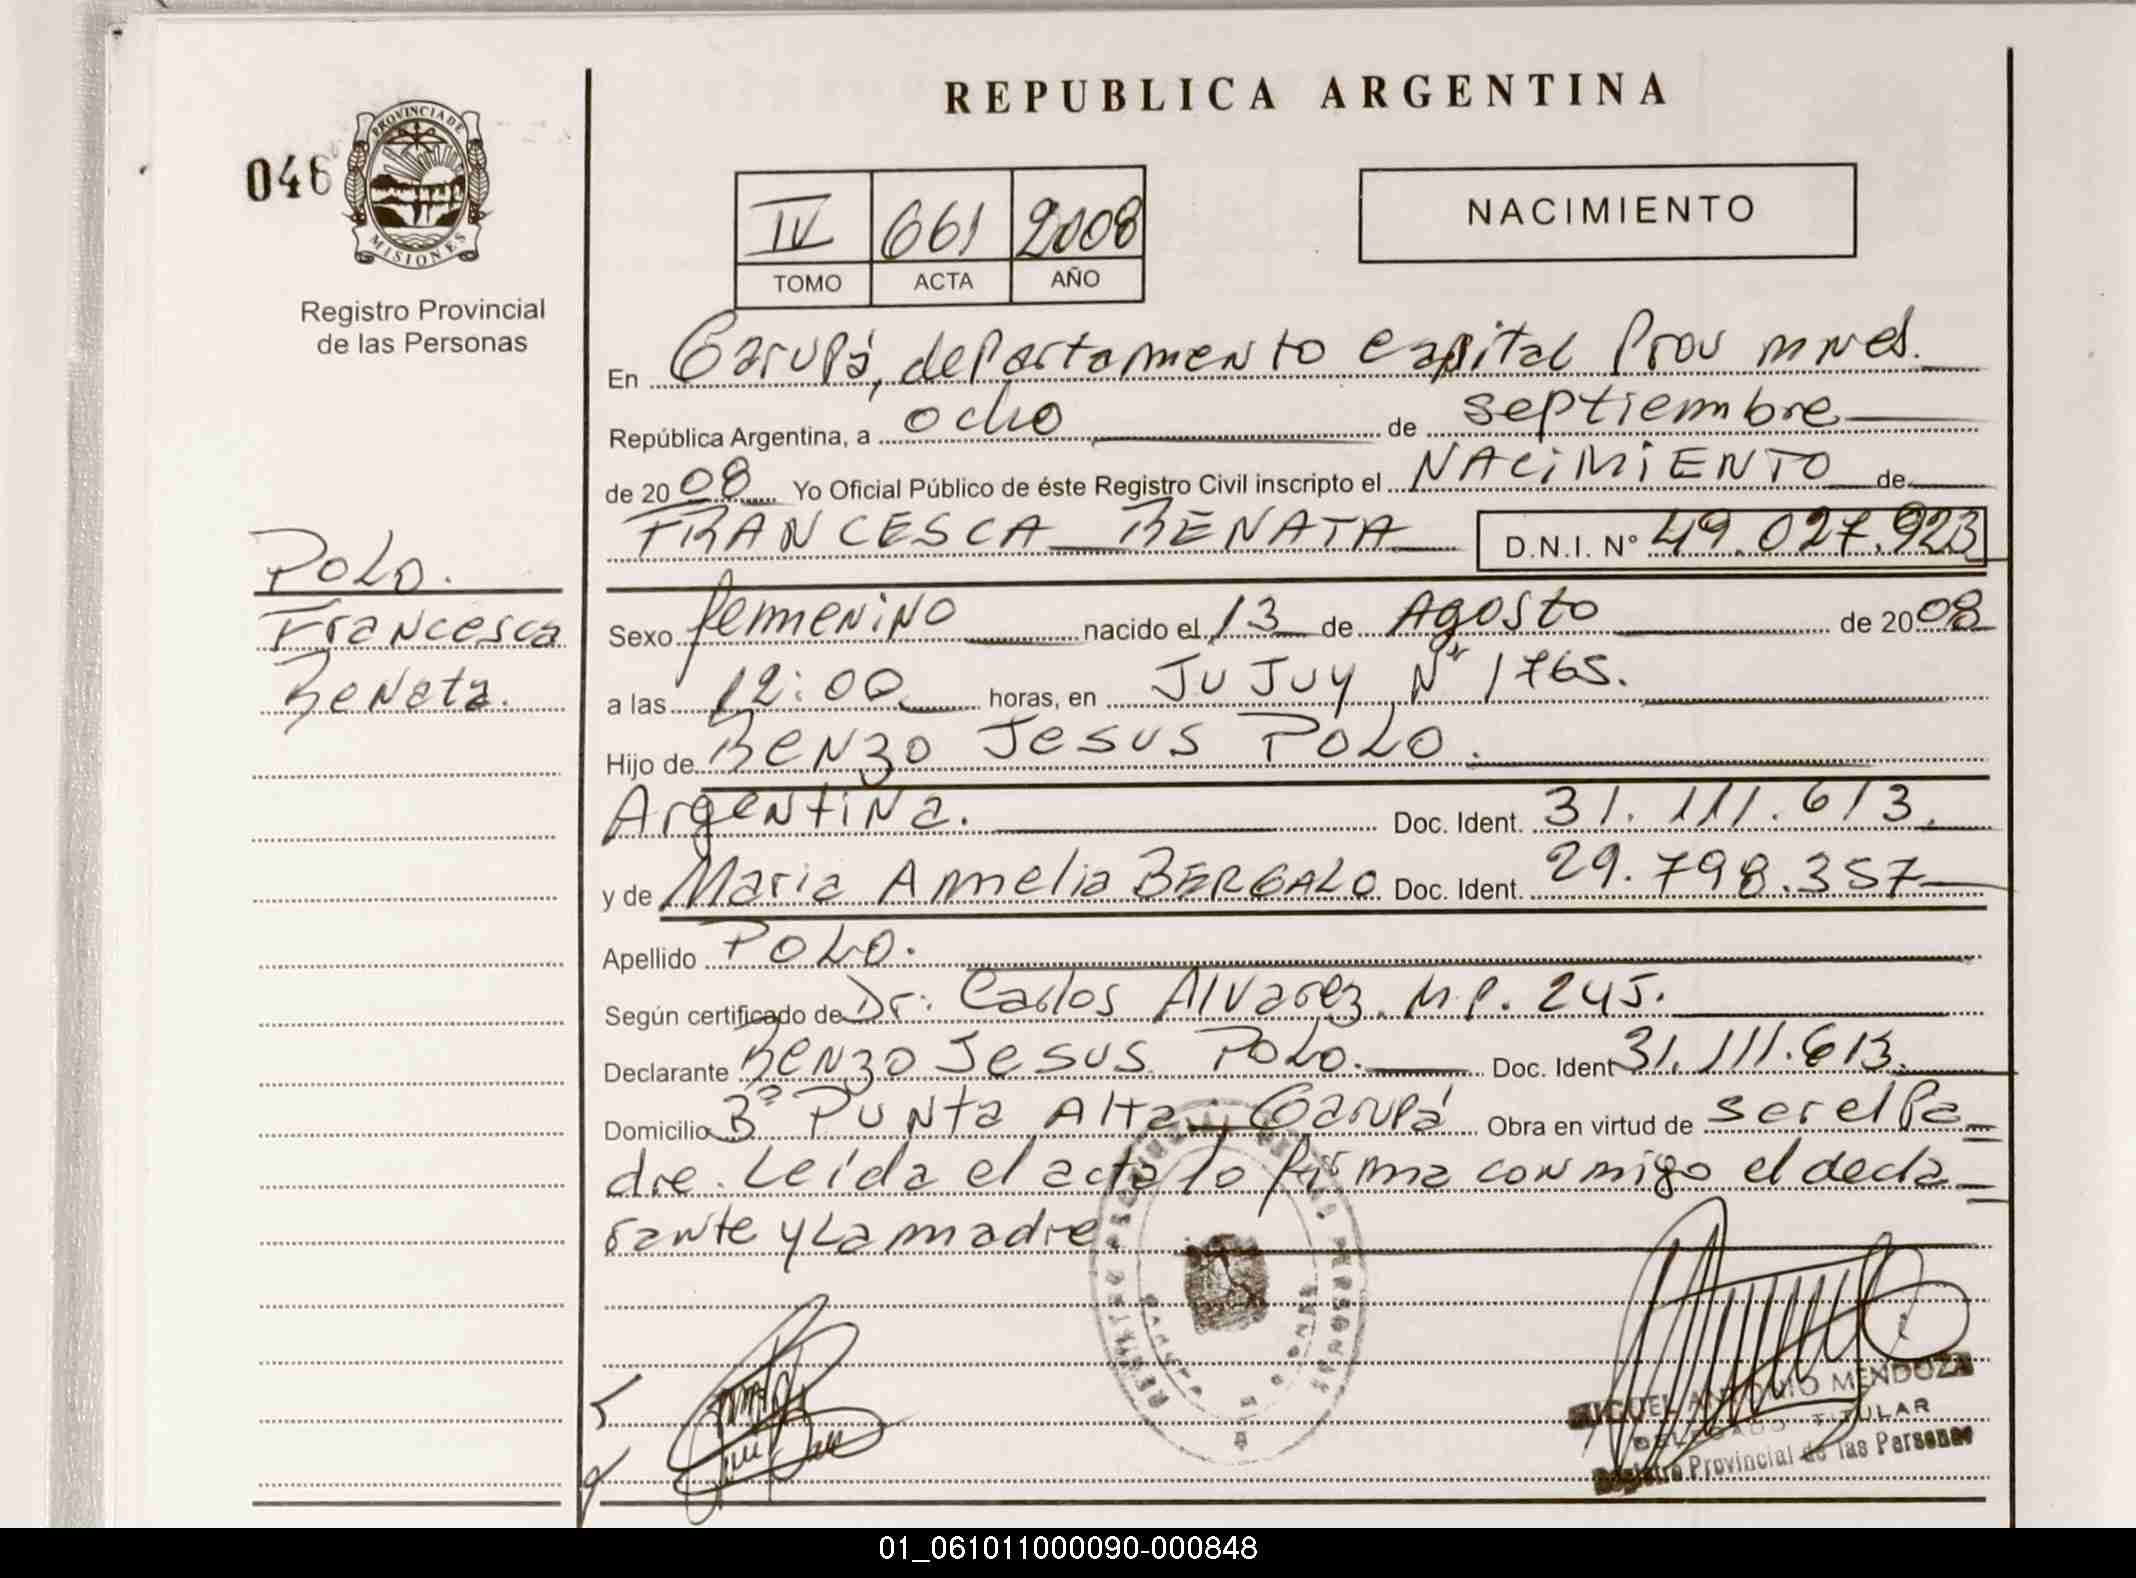 REPUBLICA ARGENTINA
046
PROVINCIA DE MISIONES
Registro Provincial
de las Personas
IV 661 2008
TOMO ACTA AÑO
NACIMIENTO
En Garupá, departamento Capital Prov mnes.
República Argentina, a ocho de septiembre
de 2008 Yo Oficial Público de éste Registro Civil inscripto el NACIMIENTO de
FRANCESCA RENATA D.N.I. N° 49.027.923
Polo.
Francesca
Renata.
Sexo femenino nacido el 13 de Agosto de 2008
a las 12:00 horas, en JuJuy N° 1765.
Hijo de Renzo Jesus Polo.
Argentina. Doc. Ident. 31.111.613.
y de Maria Amelia BERGALO Doc. Ident. 29.798.357
Apellido Polo.
Según certificado de Dr: Carlos Alvarez. M.P. 245.
Declarante Renzo Jesus Polo. Doc. Ident 31.111.613.
Domicilio B° Punta Alta - Garupá Obra en virtud de ser el Pa=
dre. Leída el acta lo firma conmigo el decla=
rante y la madre
MIGUEL ANTONIO MENDOZA
DELEGADO TITULAR
Registro Provincial de las Personas
01_061011000090-000848